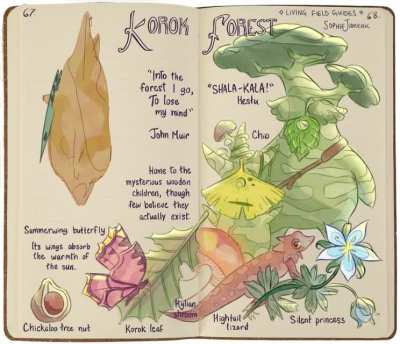 67.
KOROK FOREST
* LIVING FIELD GUIDES *
68.
"Into the
forest I go,
To lose
my mind"
John Muir
"SHALA-KALA!"
Hestu
Chio
Home to the
mysterious wooden
children, though
few believe they
actually exist.
Summerwing butterfly
Its wings absorb
the warmth of
the sun.
Chickaloo tree nut
Korok leaf
Hylian
shroom
Hightail
lizard
Silent princess